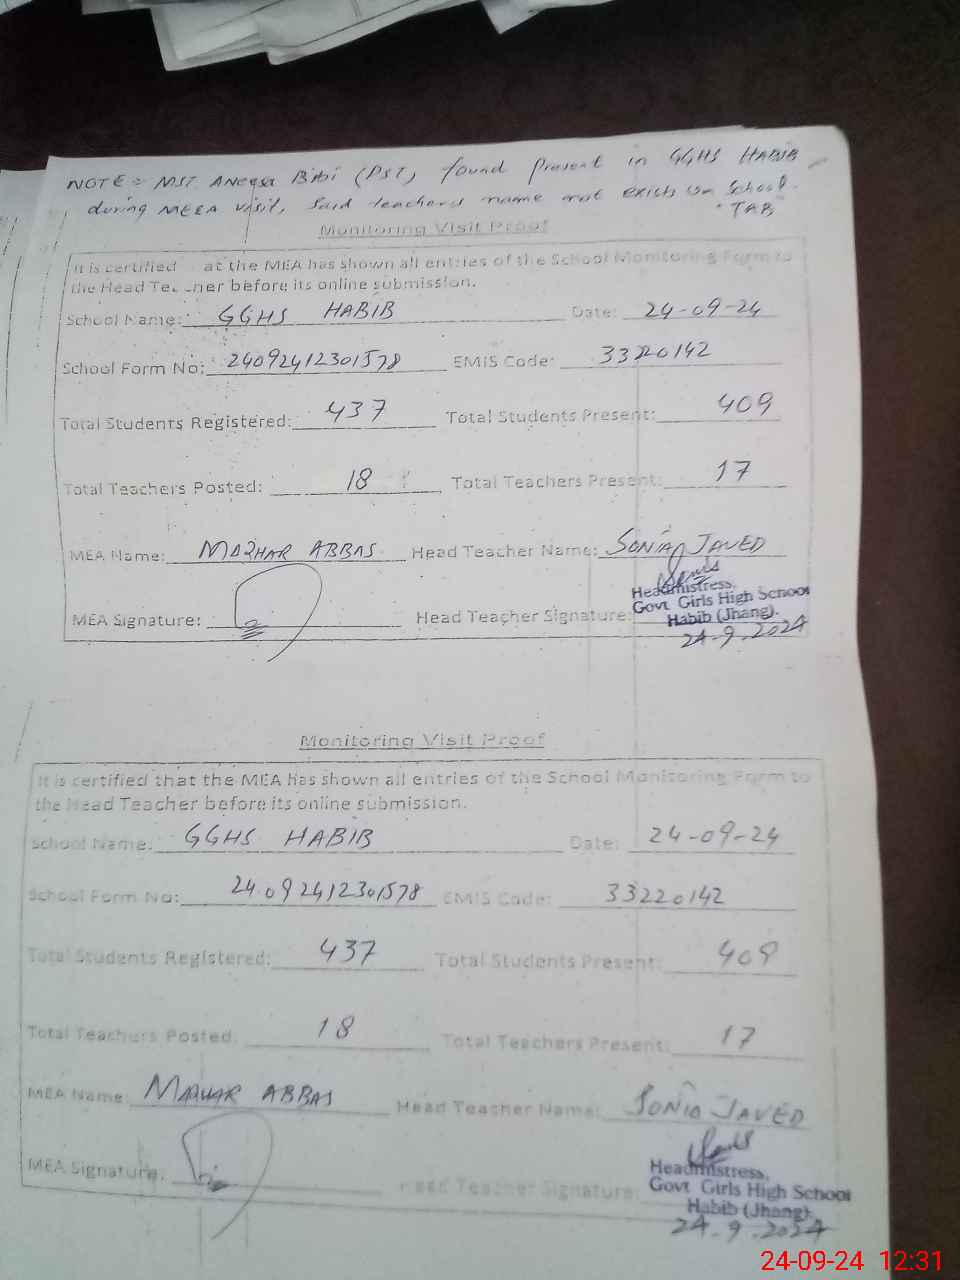 NOTE:- MST. Aneqsa Bibi (PST) found present in GGHS HABIB
during MEEA visit, Said teachers name not exists on School
TAB
Monitoring Visit Proof
It is certified at the MEA has shown all entries of the School Monitoring Form to
the Head Te ner before its online submission.
School Name: GGHS HABIB Date: 24-09-24
School Form No: 24092412301578 EMIS Code: 33220142
Total Students Registered: 437 Total Students Present: 409
Total Teachers Posted: 18 Total Teachers Present: 17
MEA Name: MAZHAR ABBAS Head Teacher Name: SONIA JAVED
MEA Signature: Head Teacher Signature:
Headmistress,
Govt Girls High School
Habib (Jhang).
24.9.2024
Monitoring Visit Proof
It is certified that the MEA has shown all entries of the School Monitoring Form to
the Head Teacher before its online submission.
School Name: GGHS HABIB Date: 24-09-24
School Form No: 24092412301578 EMIS Code: 33220142
Total Students Registered: 437 Total Students Present: 409
Total Teachers Posted: 18 Total Teachers Present: 17
MEA Name: MAZHAR ABBAS Head Teacher Name: SONIA JAVED
MEA Signature: Head Teacher Signature:
Headmistress,
Govt Girls High School
Habib (Jhang).
24.9.2024
24-09-24 12:31